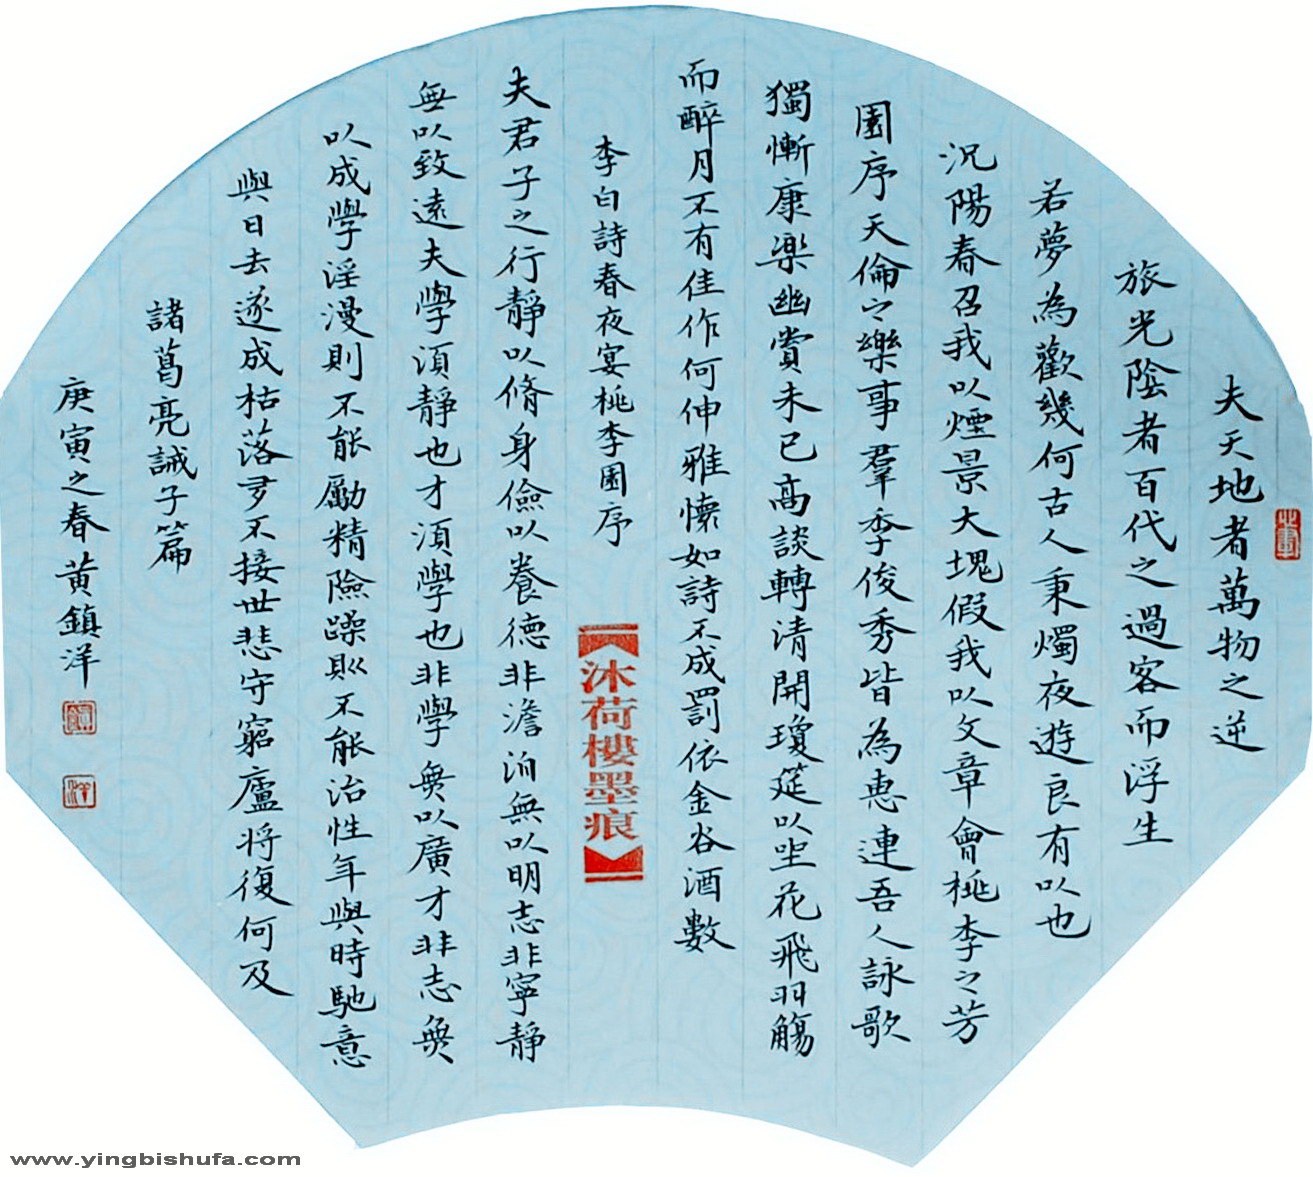 夫天地者萬物之逆
旅光陰者百代之過客而浮生
若夢為歡幾何古人秉燭夜遊良有以也
況陽春召我以煙景大塊假我以文章會桃李之芳
園序天倫之樂事羣季俊秀皆為惠連吾人詠歌
獨慚康樂幽賞未已高談轉清開瓊筵以坐花飛羽觴
而醉月不有佳作何伸雅懷如詩不成罰依金谷酒數
李白詩春夜宴桃李園序
沐荷樓墨痕
夫君子之行靜以脩身儉以養德非澹泊無以明志非寧靜
無以致遠夫學須靜也才須學也非學無以廣才非志無
以成學淫漫則不能勵精險躁則不能治性年與時馳意
與日去遂成枯落多不接世悲守窮廬將復何及
諸葛亮誡子篇
庚寅之春黃鎮洋
www.yingbishufa.com